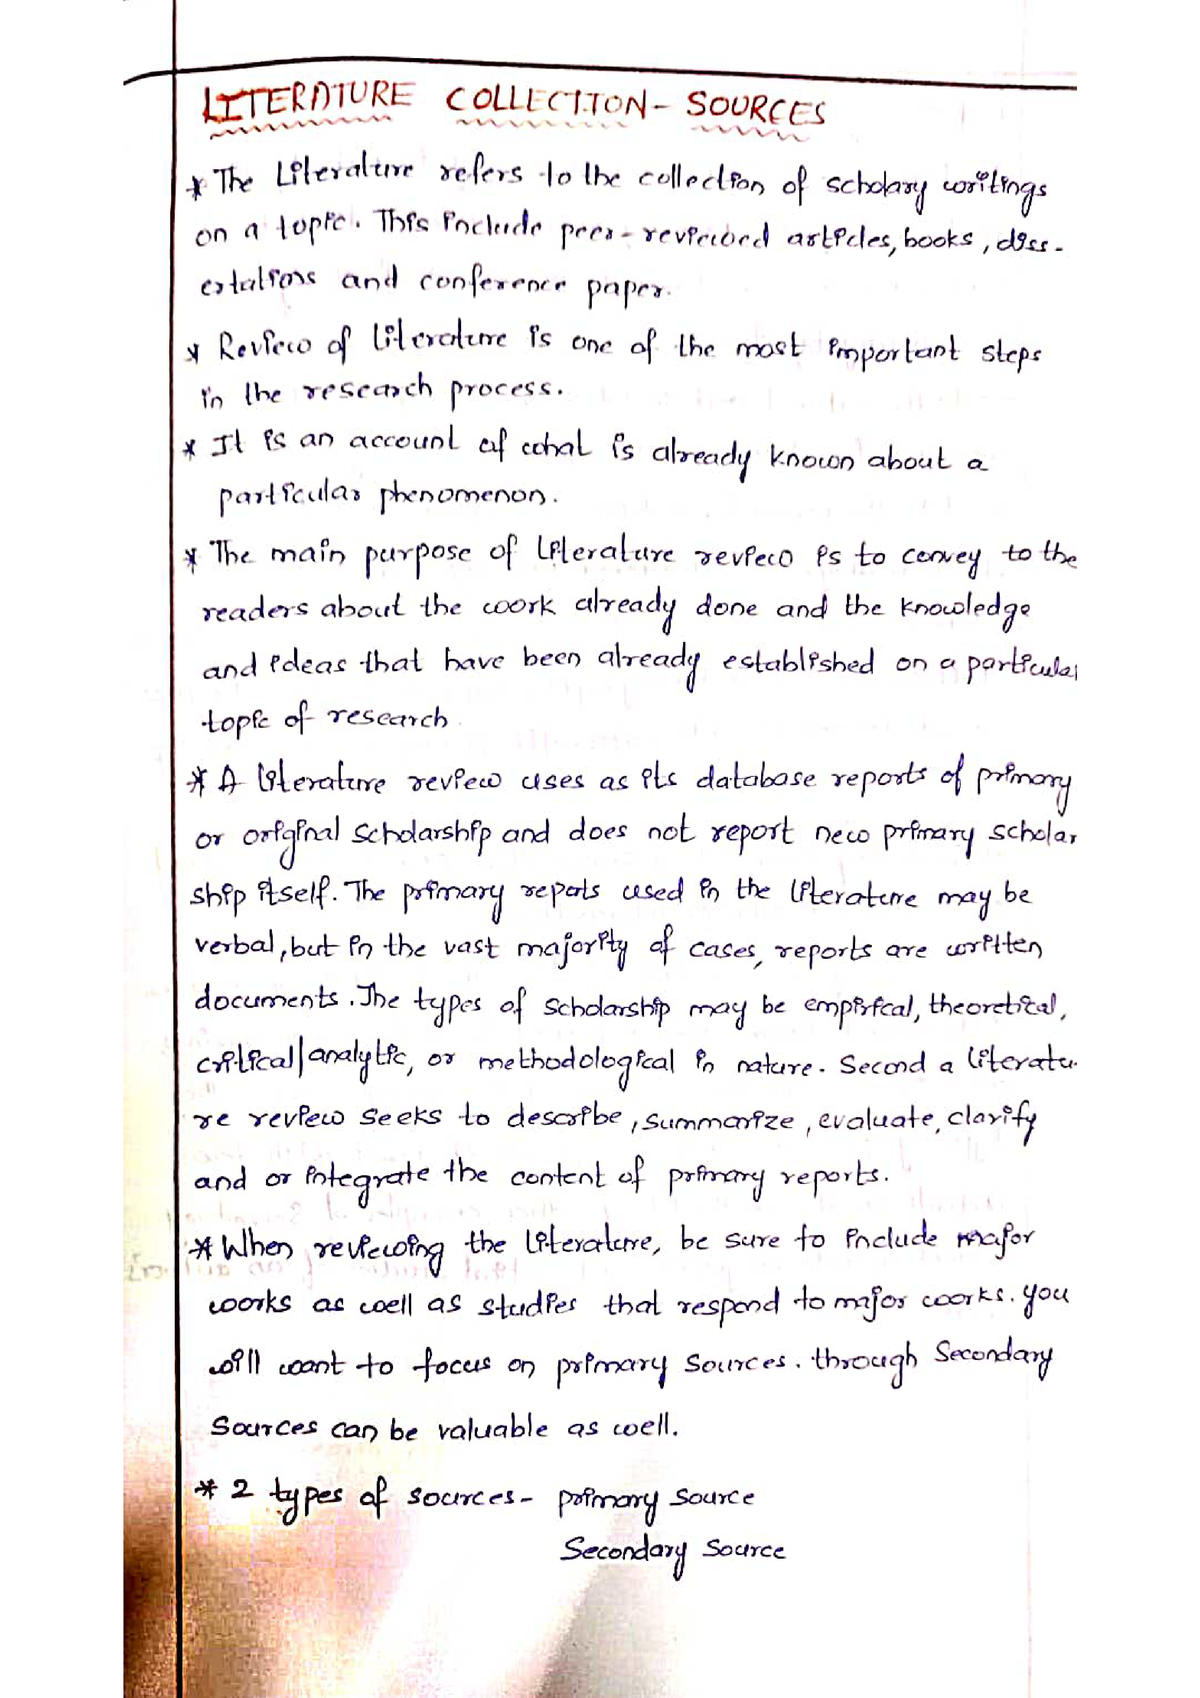 LITERATURE COLLECTION - SOURCES
* The Literature refers to the collection of scholary writings
on a topic. This include peer-reviewed articles, books, diss-
ertations and conference paper.
* Review of literature is one of the most important steps
in the research process.
* It is an account of what is already known about a
particular phenomenon.
* The main purpose of literature review is to convey to the
readers about the work already done and the knowledge
and ideas that have been already established on a particular
topic of research.
* A literature review uses as its database reports of primary
or original scholarship and does not report new primary scholar
ship itself. The primary reports used in the literature may be
verbal, but in the vast majority of cases, reports are written
documents. The types of scholarship may be empirical, theoretical,
critical/analytic, or methodological in nature. Second a literatu-
re review seeks to describe, summarize, evaluate, clarify
and or integrate the content of primary reports.
* When reviewing the literature, be sure to include major
works as well as studies that respond to major works. you
will want to focus on primary sources. through Secondary
Sources can be valuable as well.
* 2 types of sources - primary source
Secondary source